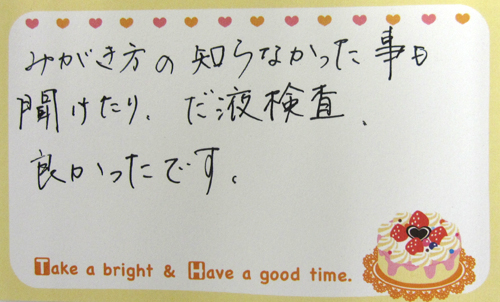 みがき方の知らなかった事も
聞けたり、だ液検査、
良かったです。
Take a bright & Have a good time.